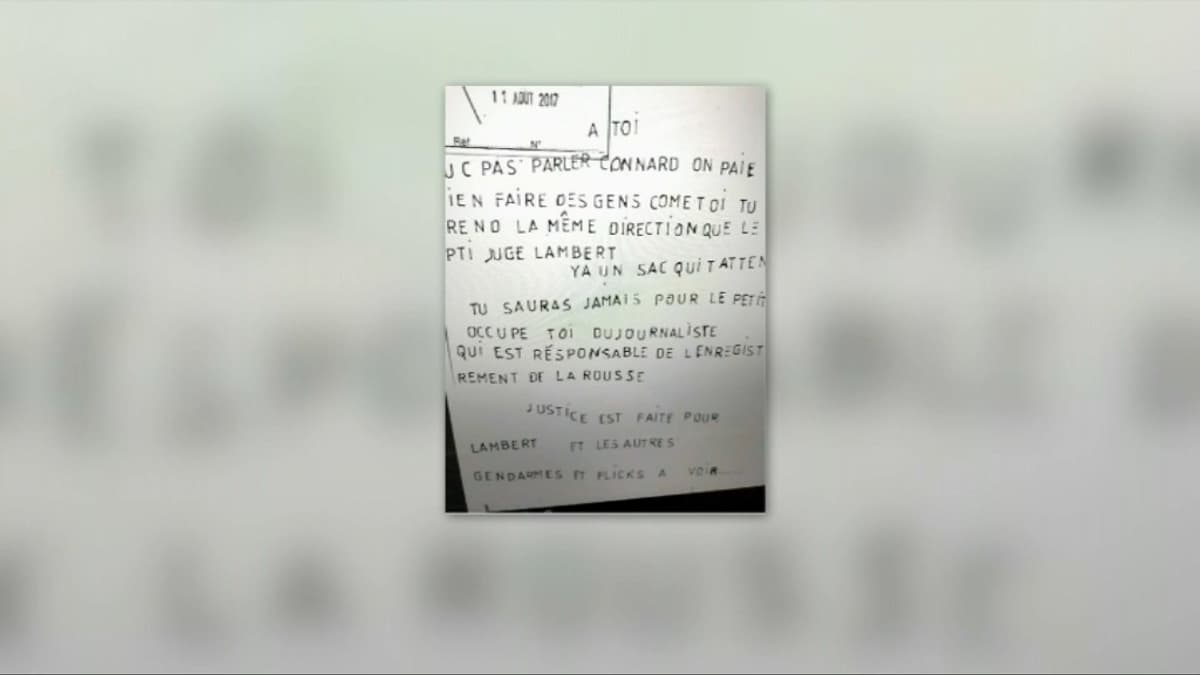 11 AOUT 2017
Réf. N°
A TOI
J C PAS PARLER CONNARD ON PAIE
IEN FAIRE DES GENS COME TOI TU
REND LA MÊME DIRECTION QUE LE
PTI JUGE LAMBERT
YA UN SAC QUI T ATTEN
TU SAURAS JAMAIS POUR LE PETIT
OCCUPE TOI DU JOURNALISTE
QUI EST RÉSPONSABLE DE L ENREGIST
REMENT DE LA ROUSSE
JUSTICE EST FAITE POUR
LAMBERT ET LES AUTRES
GENDARMES ET FLICKS A VOIR.....